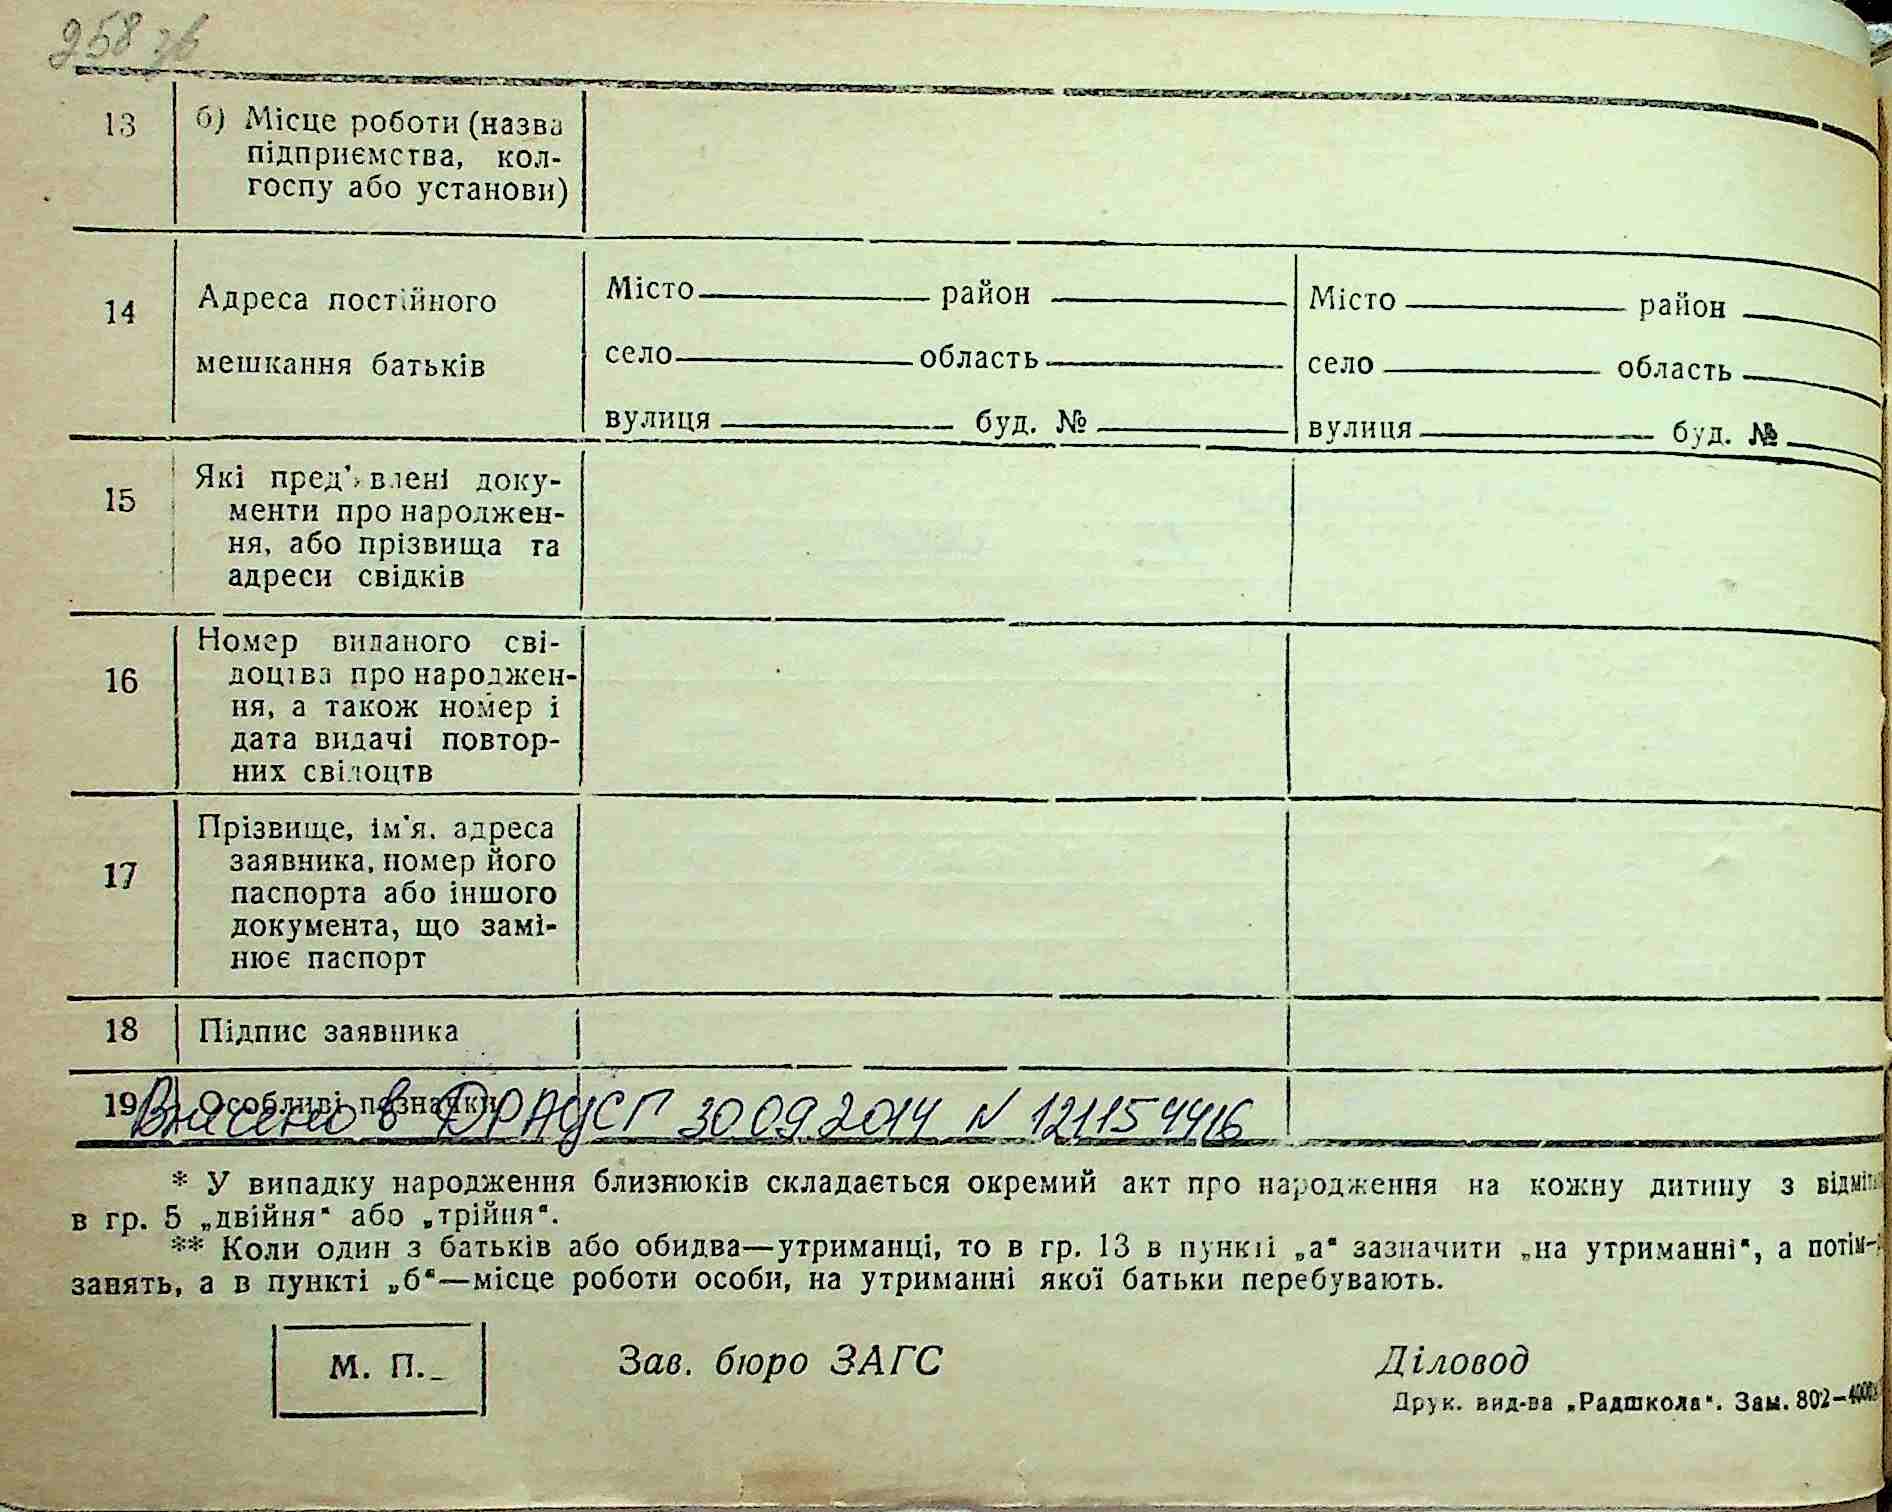 258 зв
13 б) Місце роботи (назва
підприємства, кол-
госпу або установи)
14 Адреса постійного
мешкання батьків
Місто район
село область
вулиця буд. №
Місто район
село область
вулиця буд. №
15 Які пред'явлені доку-
менти про народжен-
ня, або прізвища та
адреси свідків
16 Номер виданого сві-
доцтва про народжен-
ня, а також номер і
дата видачі повтор-
них свідоцтв
17 Прізвище, ім'я, адреса
заявника, номер його
паспорта або іншого
документа, що замі-
нює паспорт
18 Підпис заявника
19 Особливі позначки
Внесено в ДРАЦСГ 30 09 2014 N 12115 4416
* У випадку народження близнюків складається окремий акт про народження на кожну дитину з
в гр. 5 „двійня“ або „трійня“.
** Коли один з батьків або обидва—утриманці, то в гр. 13 в пункті „а“ зазначити „на утриманні“, а потім
занять, а в пункті „б“—місце роботи особи, на утриманні якої батьки перебувають.
М. П.
Зав. бюро ЗАГС
Діловод
Друк. вид-ва „Радшкола“. Зам. 802-